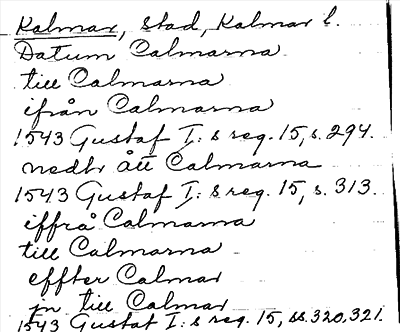 Kalmar, stad, Kalmar l.
Datum Calmarna
till Calmarna
ifrån Calmarna
1543 Gustaf I:s reg. 15, s. 294.
nedhr ått Calmarna
1543 Gustaf I:s reg. 15, s. 313.
iffrå Calmarna
till Calmarna
effter Calmar
jn till Calmar
1543 Gustaf I:s reg. 15, ss. 320, 321.